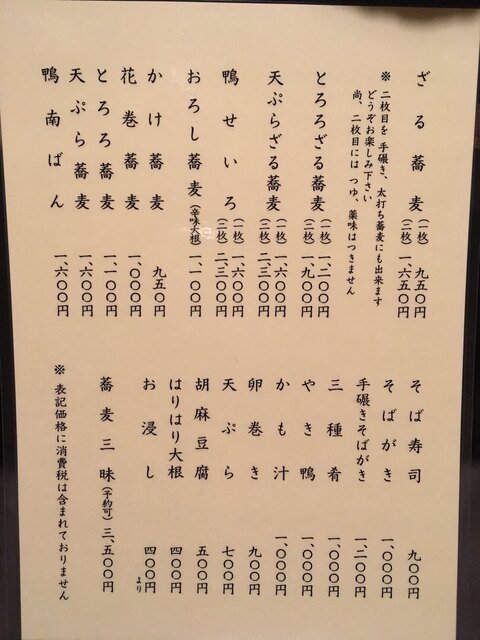 ざる蕎麦 (一枚) 九五〇円
(二枚) 一、六五〇円
※ 二枚目を 手碾き、太打ち蕎麦にも出来ます
どうぞお楽しみ下さい
尚、二枚目には つゆ、薬味はつきません
とろろざる蕎麦 (一枚) 一、二〇〇円
(二枚) 一、九〇〇円
天ぷらざる蕎麦 (一枚) 一、六〇〇円
(二枚) 二、三〇〇円
鴨せいろ (一枚) 一、六〇〇円
(二枚) 二、三〇〇円
おろし蕎麦 (辛味大根) 一、一〇〇円
かけ蕎麦 九五〇円
花巻蕎麦 一、〇〇〇円
とろろ蕎麦 一、一〇〇円
天ぷら蕎麦 一、六〇〇円
鴨南ばん 一、六〇〇円
そば寿司 九〇〇円
そばがき 一、〇〇〇円
手碾きそばがき 一、二〇〇円
三種肴 一、〇〇〇円
やき鴨 一、〇〇〇円
かも汁 一、〇〇〇円
卵巻き 九〇〇円
天ぷら 七〇〇円
胡麻豆腐 五〇〇円
はりはり大根 四〇〇円
お浸し 四〇〇円より
蕎麦三昧 (予約可) 三、五〇〇円
※ 表記価格に消費税は含まれておりません